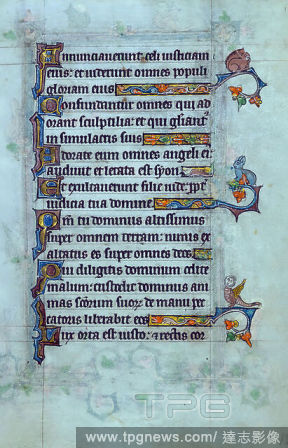 Annunciaverunt celi iusticiam
eius: et viderunt omnes populi
gloriam eius
Confundantur omnes qui ad
orant sculptilia: et qui gliant
in simulacris suis
Adorate eum omnes angeli ei
audivit et letata est syon
Et exultaverunt filie iude: ppt
iudicia tua domine
Qm tu dominus altissimus
super omnem terram: nimis ex
altatus es super omnes deos
Qui diligitis dominum odite
malum: custodit dominus ani
mas scorum suorum de manu pec
catoris liberabit eos
Lux orta est iusto: et rectis cor
TPG
www.tpgnews.com/ 達志影像